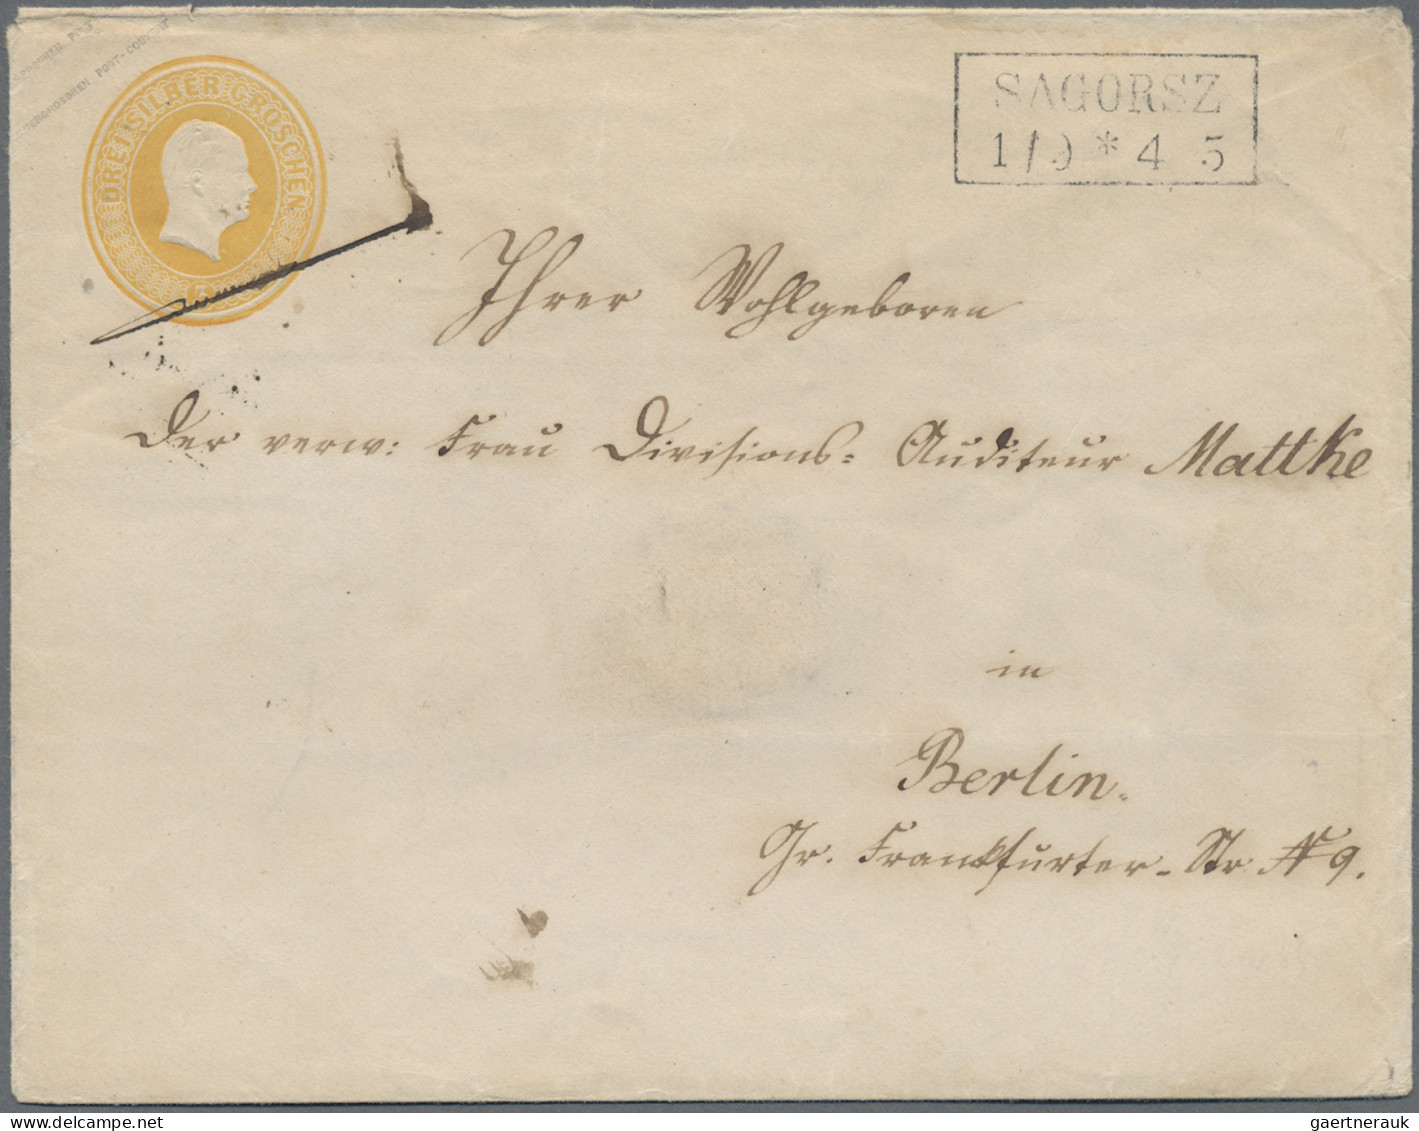 POST-COUVERT
DREI SILBER GROSCHEN
3
SAGORSZ
1/9 * 4 5
Ihrer Wohlgeboren
Der verw: Frau Divisions= Auditeur Mattke
in
Berlin.
Gr. Frankfurter-Str № 9.
gaertnerauk